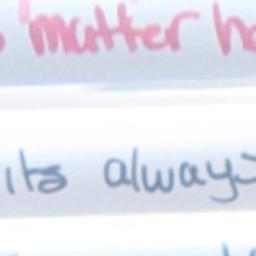 matter
its always